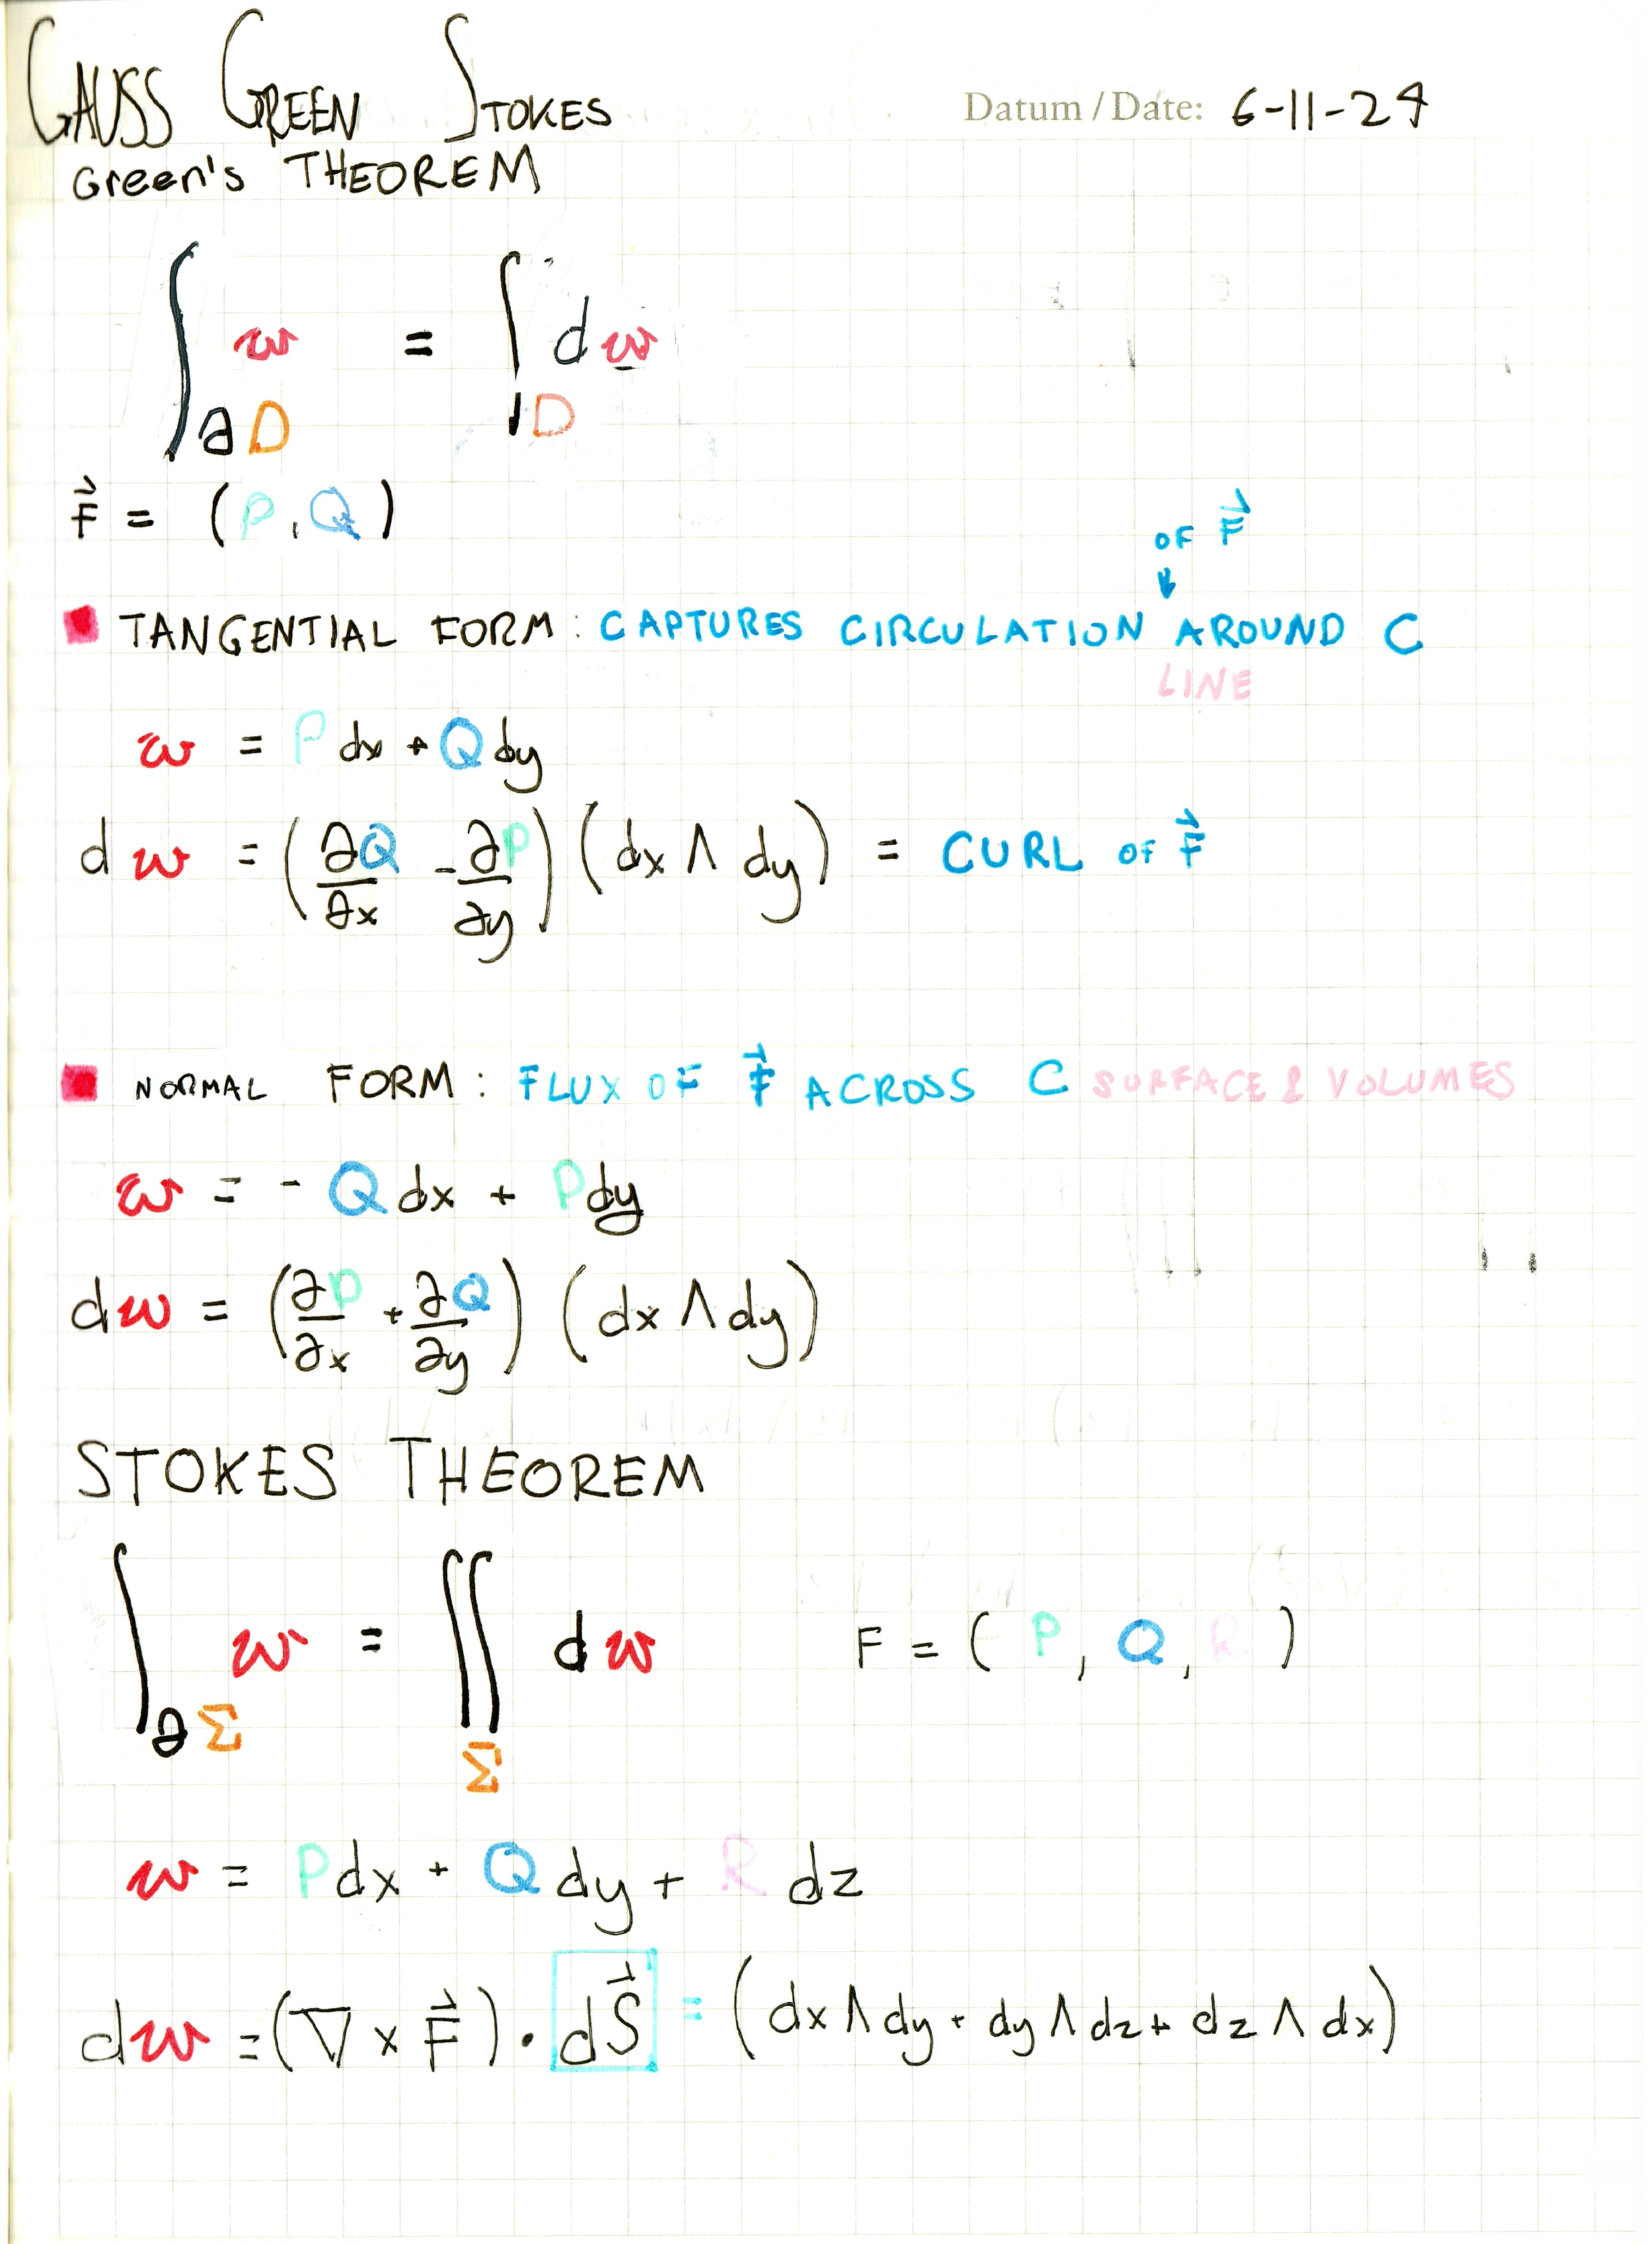 GAUSS GREEN STOKES
Datum / Date: 6-11-24
Green's THEOREM
∫_∂D w = ∫_D dw
F⃗ = (P, Q)
OF F⃗
↓
■ TANGENTIAL FORM: CAPTURES CIRCULATION AROUND C
LINE
w = P dx + Q dy
dw = (∂Q/∂x - ∂P/∂y) (dx ∧ dy) = CURL OF F⃗
■ NORMAL FORM: FLUX OF F⃗ ACROSS C SURFACE & VOLUMES
w = - Q dx + P dy
dw = (∂P/∂x + ∂Q/∂y) (dx ∧ dy)
STOKES THEOREM
∫_∂Σ w = ∬_Σ dw F = (P, Q, R)
w = P dx + Q dy + R dz
dw = (∇ × F⃗) · dS⃗ = (dx ∧ dy + dy ∧ dz + dz ∧ dx)